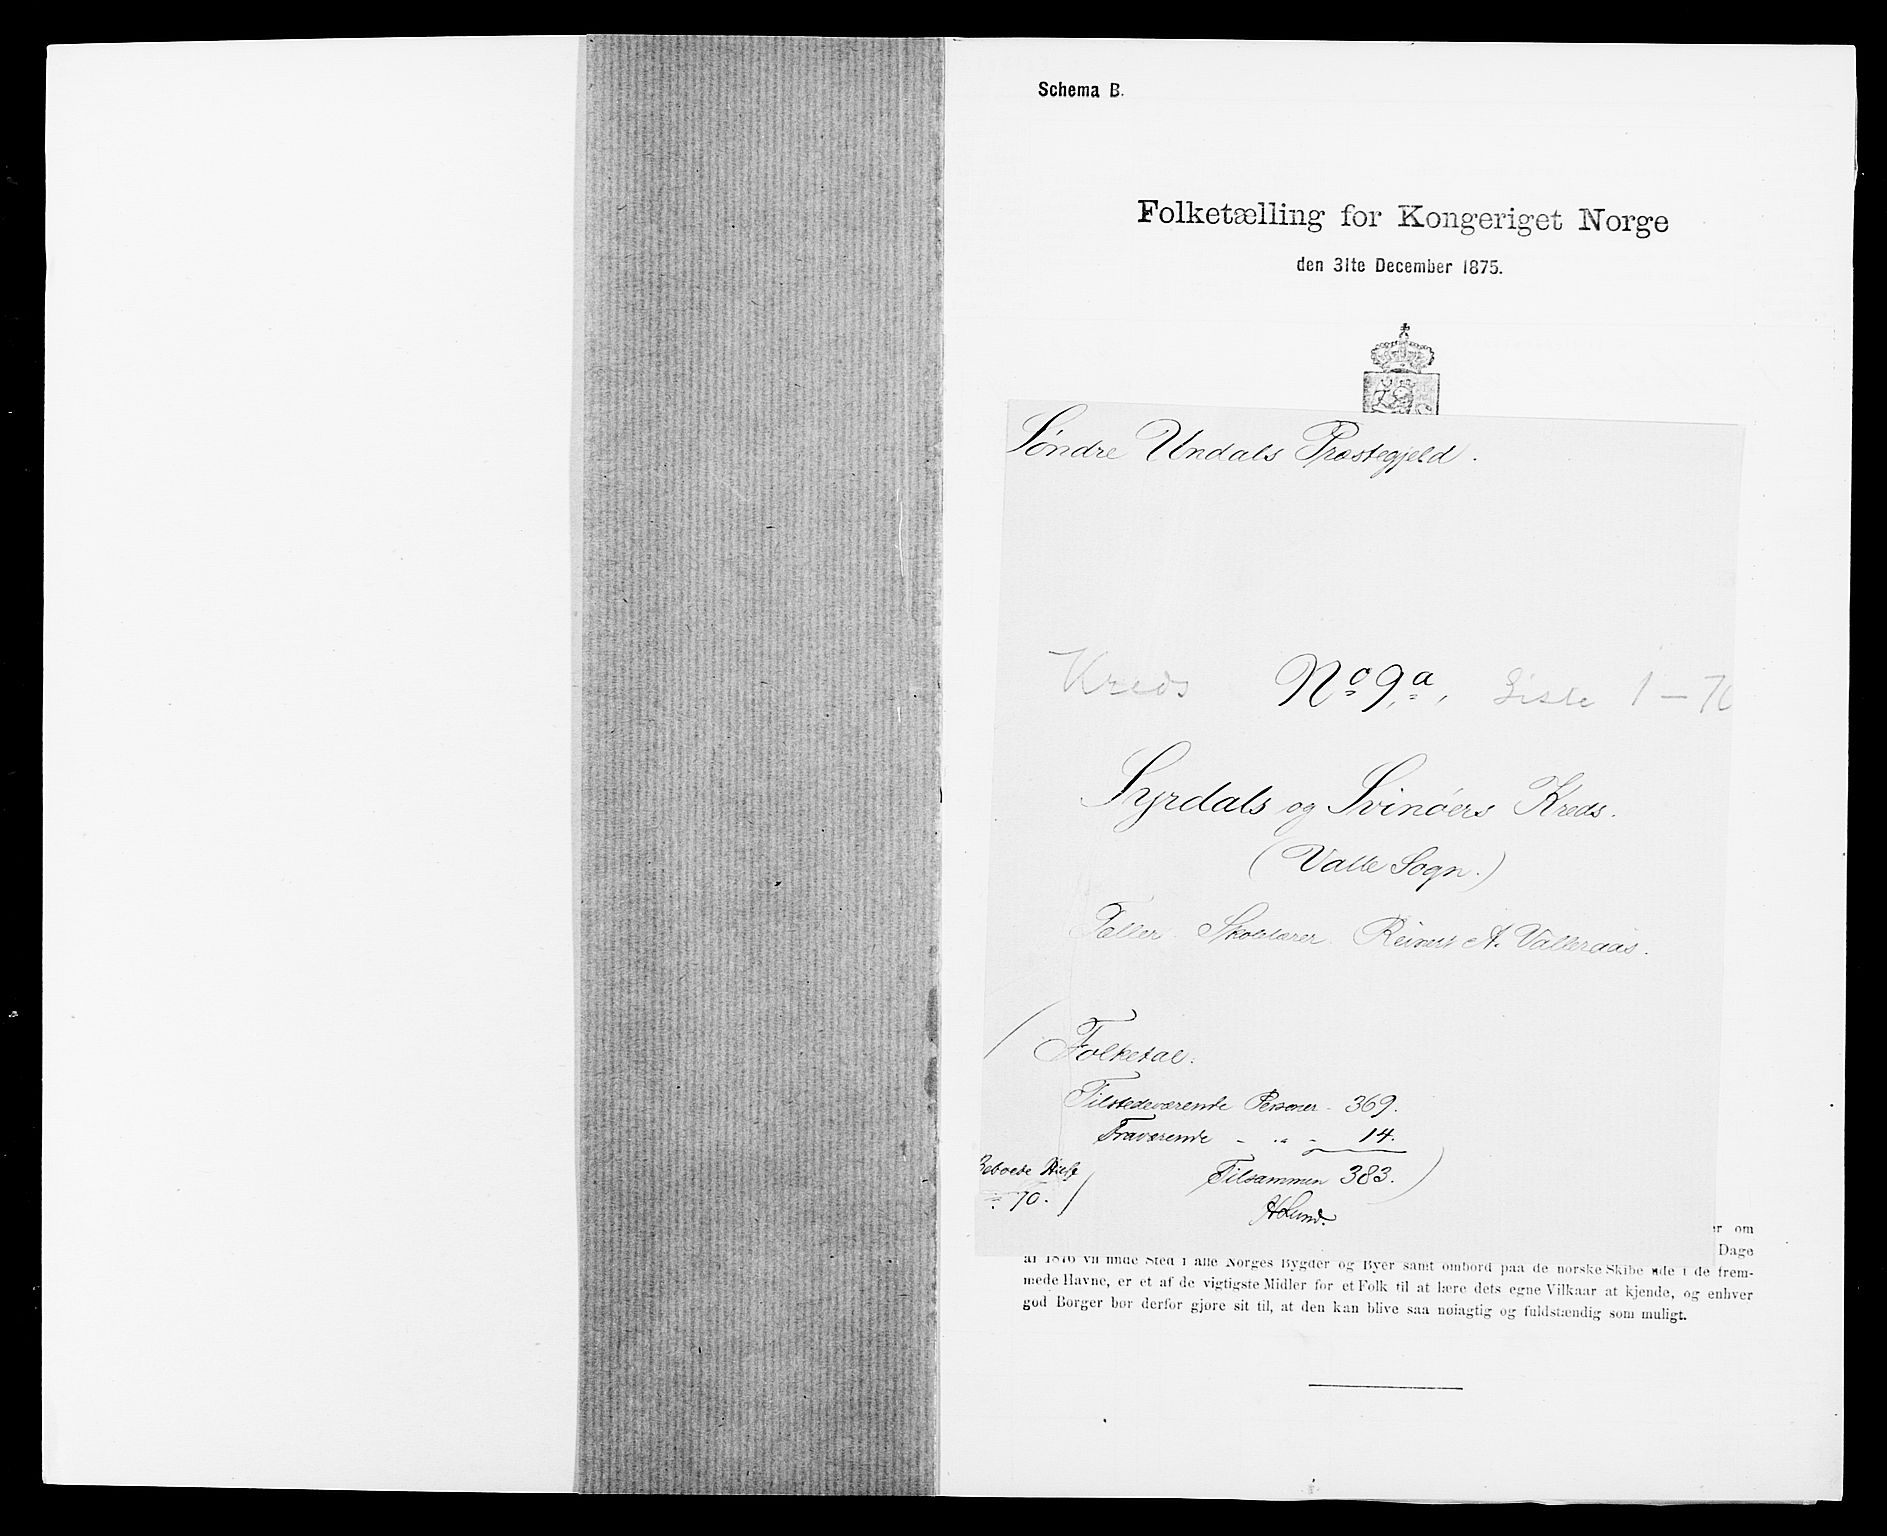 Schema B.
Folketælling for Kongeriget Norge
den 31te December 1875.
Söndre Undals Præstegjeld.
Kreds No 9.a, Liste 1 – 70
Syrdals og Svinöers Kreds.
(Valle Sogn.)
Tæller Skolelærer Reinert A. Valleraas.
Folketal.
Tilstedeværende Personer - 369.
Fraværende - „ - 14.
Tilsammen 383.
Beboede Huse
70.
HLund.
er om
Dage
af 1876 vil finde Sted i alle Norges Bygder og Byer samt ombord paa de norske Skibe ude i de frem-
mede Havne, er et af de vigtigste Midler for et Folk til at lære dets egne Vilkaar at kjende, og enhver
god Borger bør derfor gjøre sit til, at den kan blive saa nøiagtig og fuldstændig som muligt.